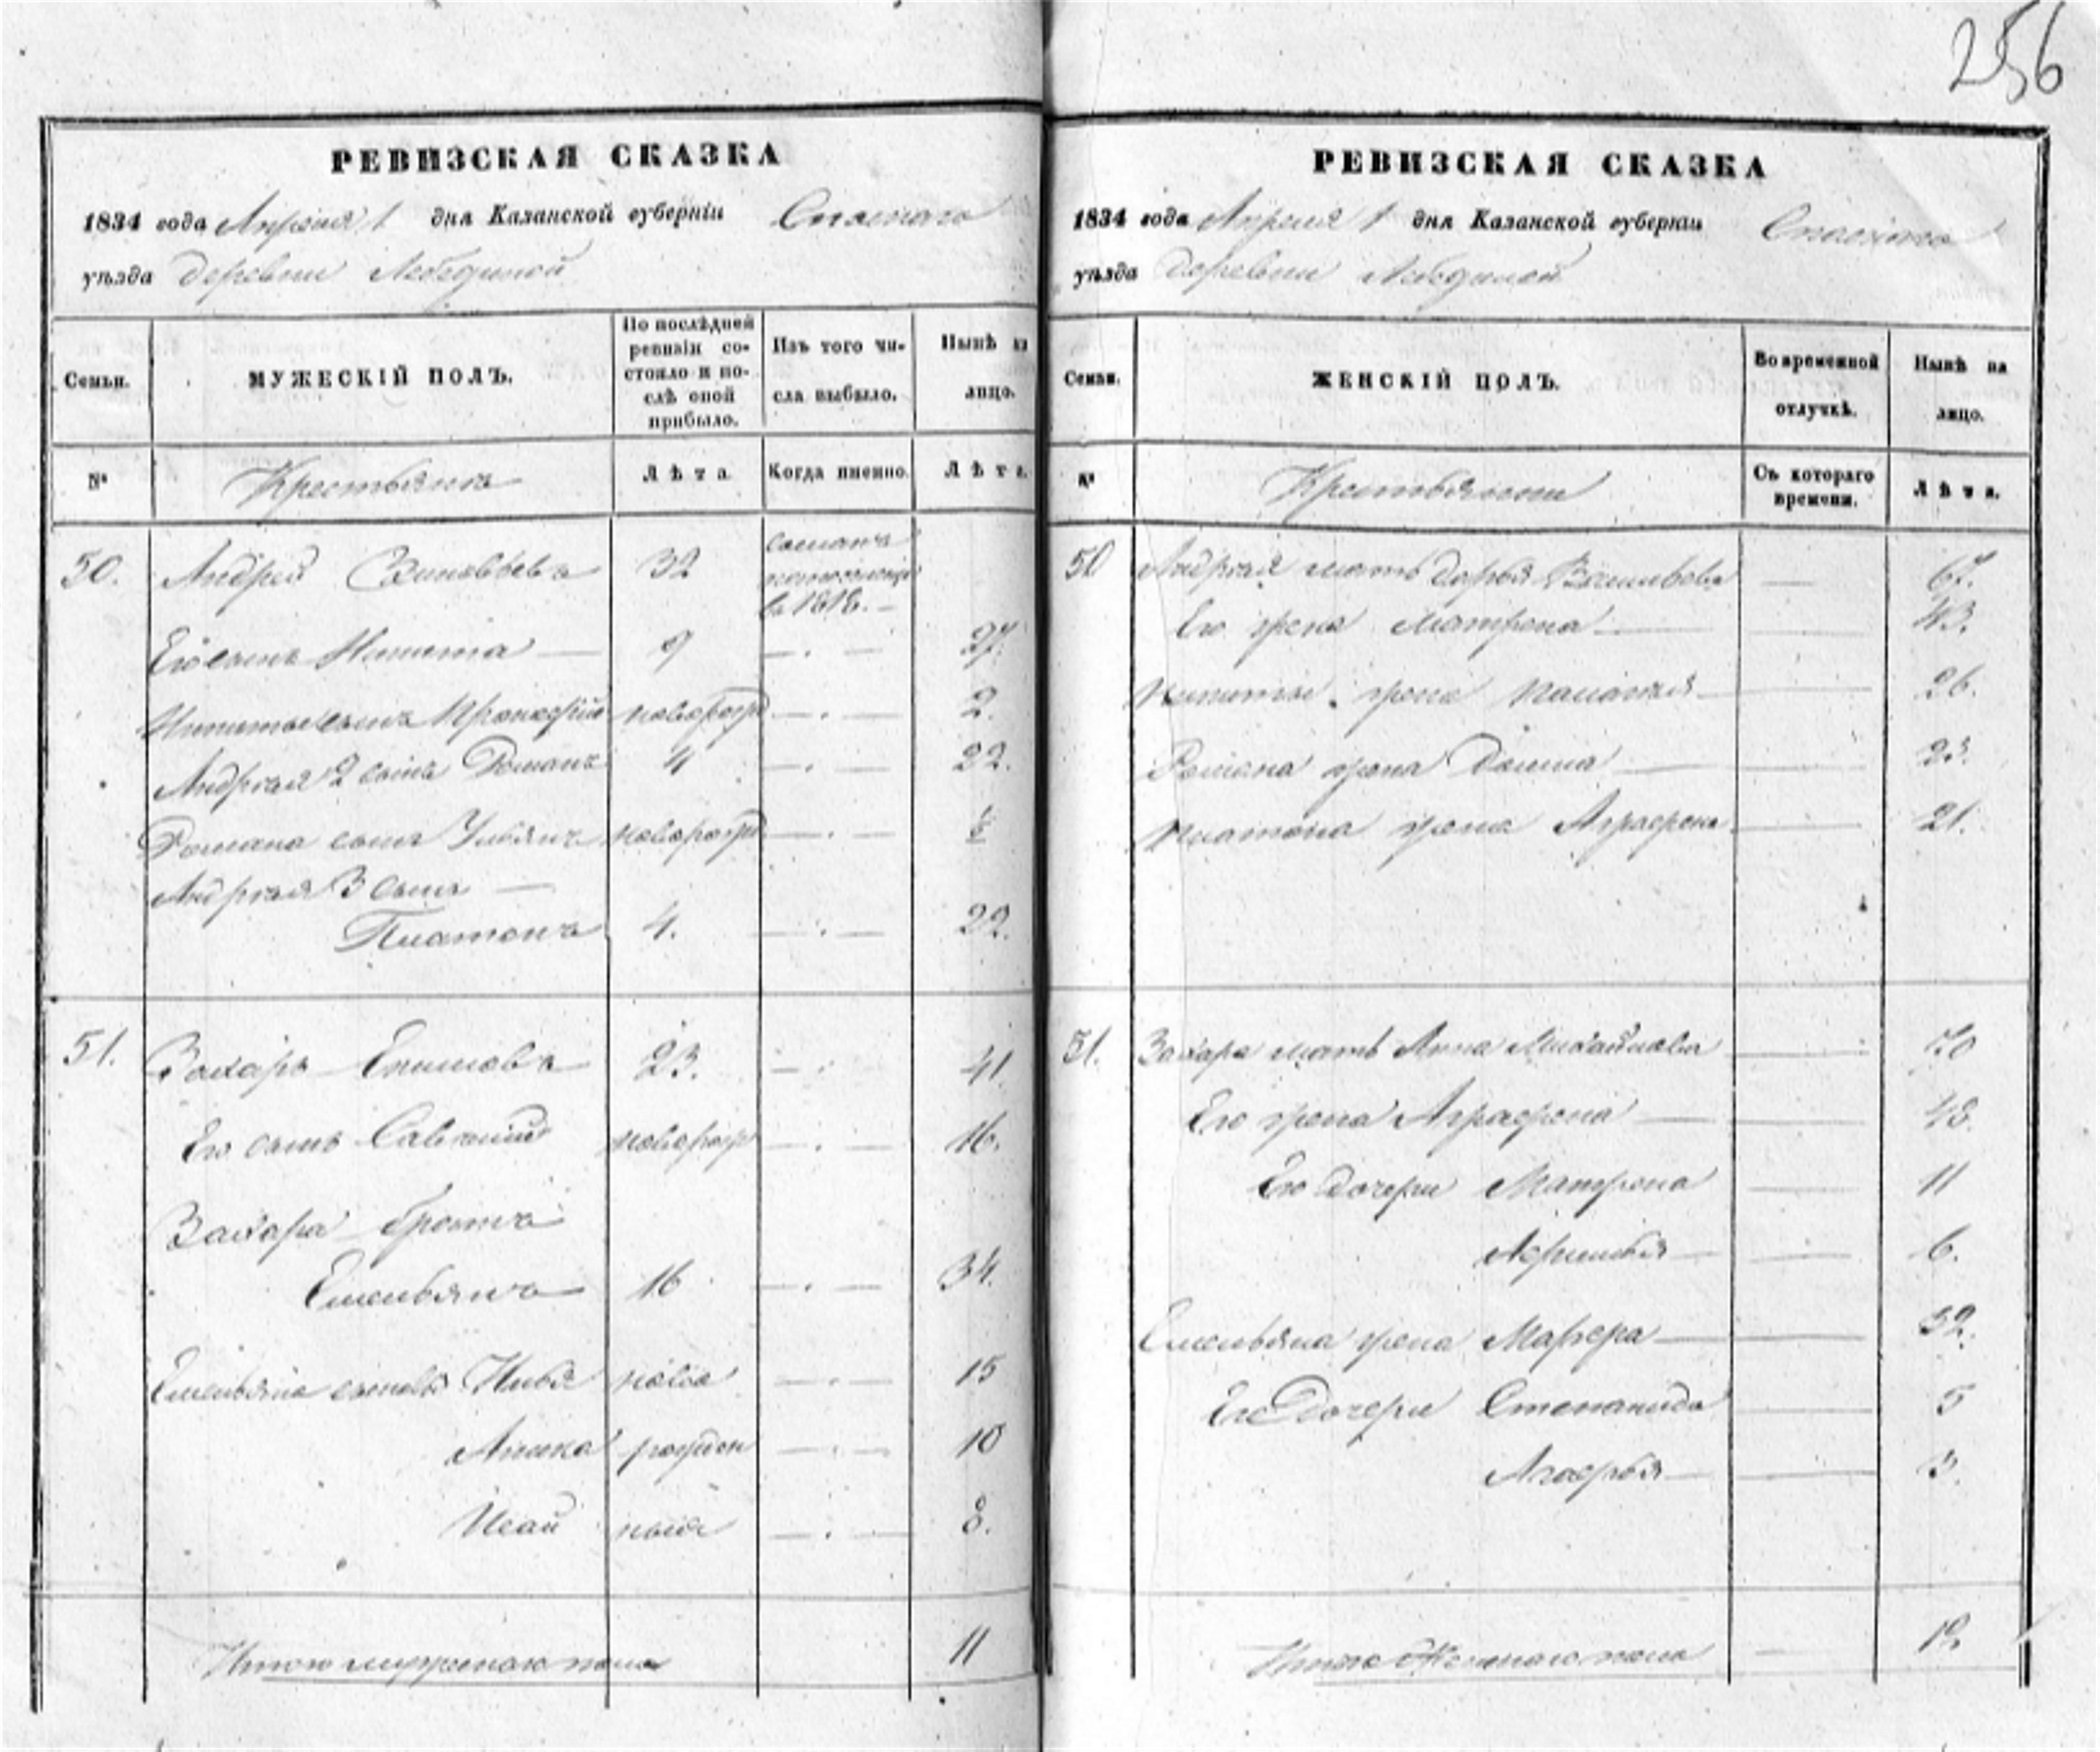 256
РЕВИЗСКАЯ СКАЗКА
1834 года Апреля 1 дня Казанской губерніи Спаскаго
уѣзда деревни Лебединой
Семьи.
МУЖЕСКІЙ ПОЛЪ.
По послѣдней ревизіи состояло и послѣ оной прибыло.
Изъ того числа выбыло.
Нынѣ на лицо.
№
Крестьянъ
Лѣта
Когда именно.
Лѣта.
50. Андрей Зиновьевъ 32
въ 1818.
Его сынъ Никита 9 27.
Никиты сынъ Прокофій новорожд 2.
Андрея 2 сынъ Романъ 4 22.
Романа сынъ Ульянъ новорожд
Андрея 3 сынъ
Платонъ 4. 22.
51. Захаръ Епишевъ 23. 41.
Его сынъ Савелий новорож 16.
Захара братъ
Емельянъ 16 34.
Емельяна сыновья Илья ново 15
Аника рожден 10
Исай ные 8.
Итого мужеска пола 11
РЕВИЗСКАЯ СКАЗКА
1834 года Апреля 1 дня Казанской губерніи Спаскаго
уѣзда деревни Лебединой
Семьи.
ЖЕНСКІЙ ПОЛЪ.
Во временной отлучкѣ.
Нынѣ на лицо.
№
Крестьянки
Съ котораго времени.
Лѣта.
50 Андрея мать Дарья Васильева 67.
Его жена Матрена 43.
Никиты жена Палагея 26.
Романа жена Домна 23.
Платона жена Аграфена 21.
51. Захара мать Анна Михайлова 70
Его жена Аграфена 43.
Его дочери Матрена 11
6.
Емельяна жена Марфа 32.
Его дочери Степанида 5
Агафья 3.
Итого Женскаго пола 12